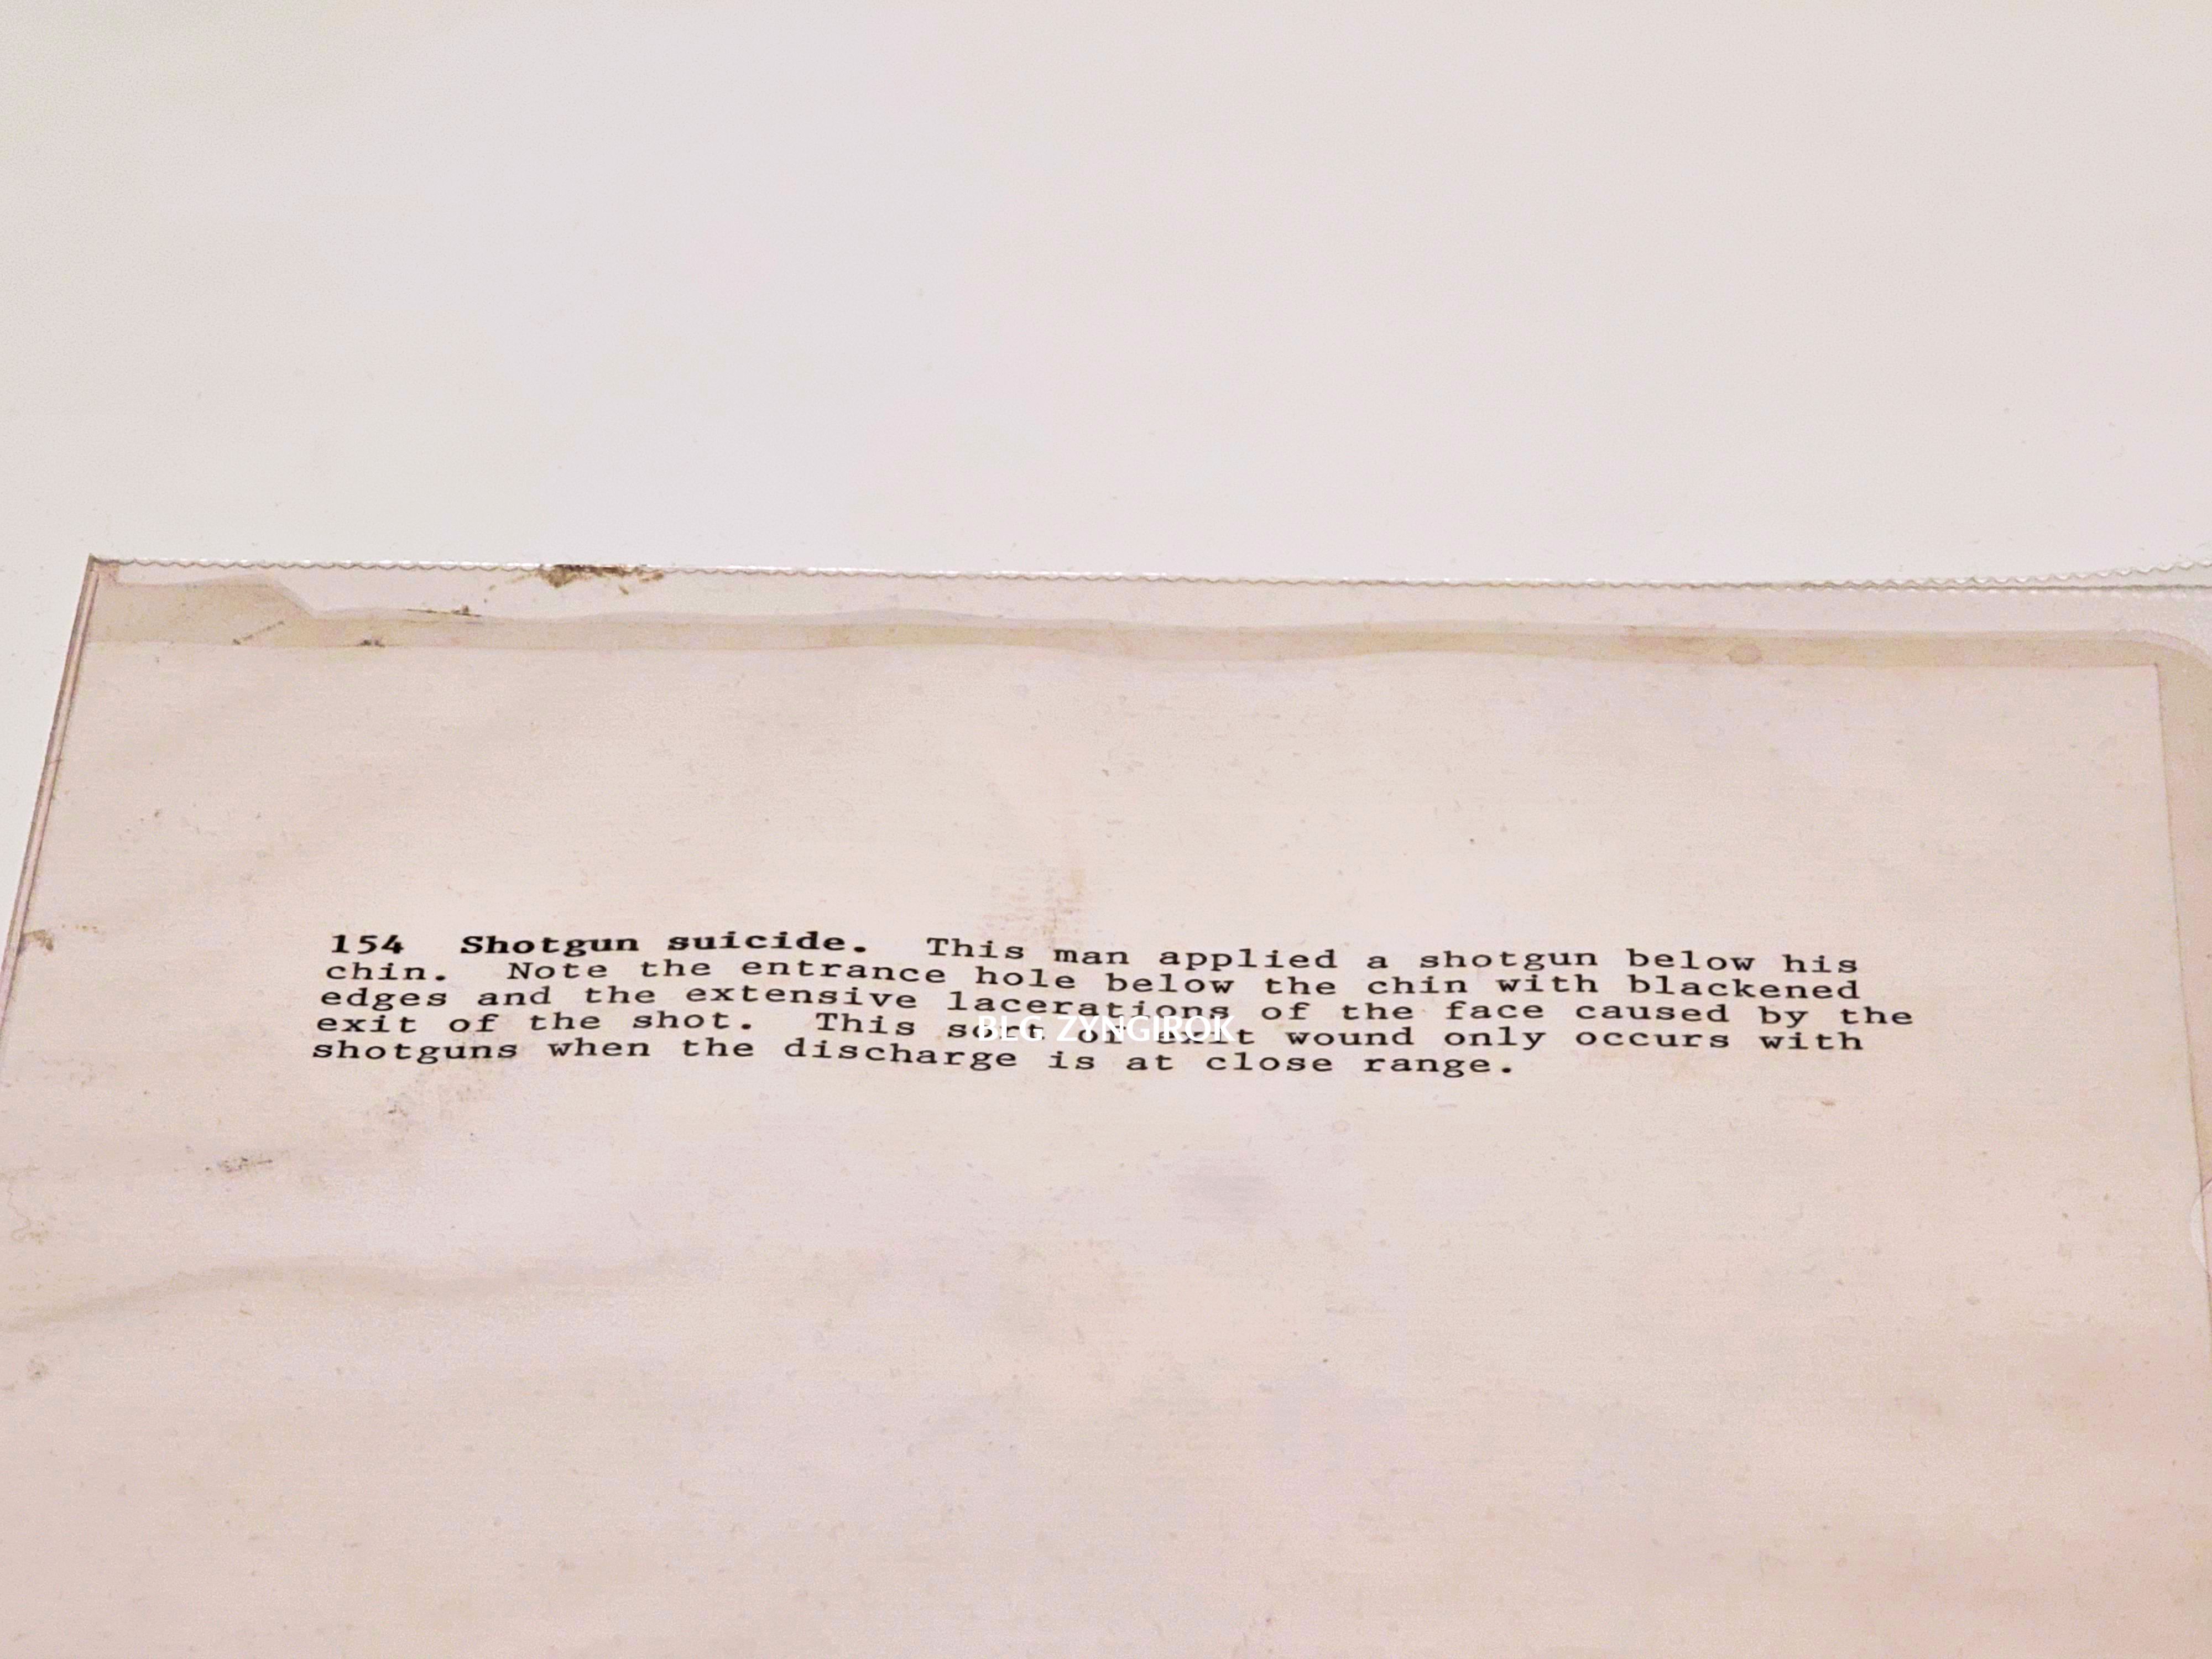 154 Shotgun suicide. This man applied a shotgun below his
chin. Note the entrance hole below the chin with blackened
edges and the extensive lacerations of the face caused by the
exit of the shot. This sort of exit wound only occurs with
shotguns when the discharge is at close range.
BLG ZYNGIROK